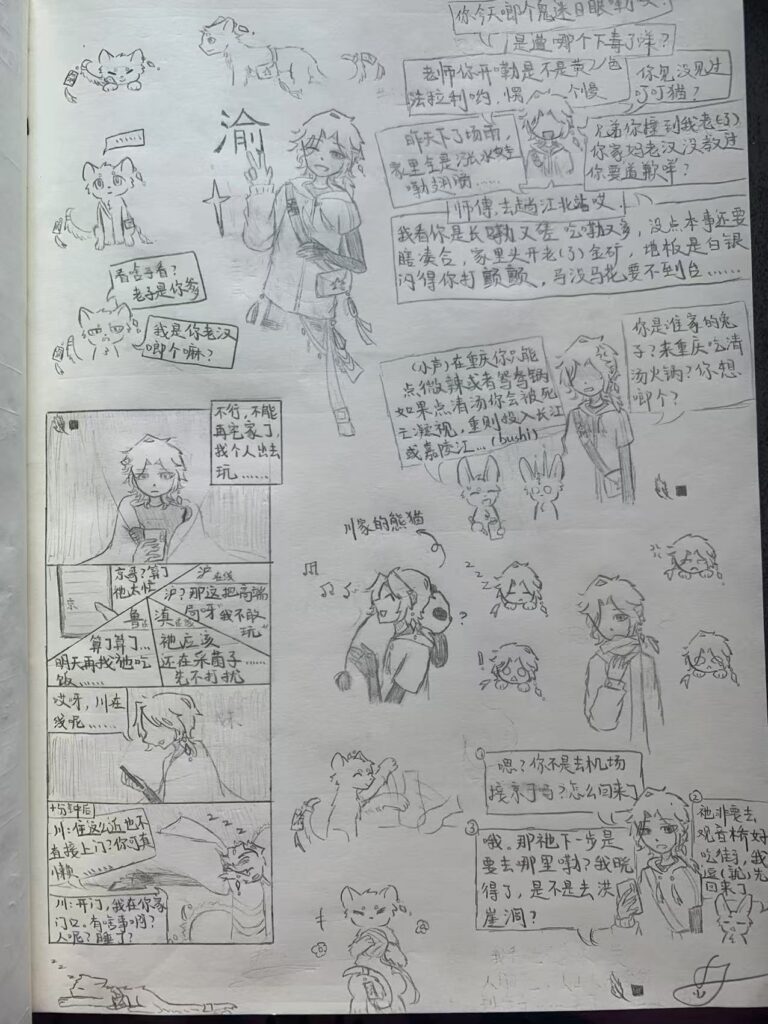 你今天啷个鬼迷日眼嘞哎?
是遭哪个下毒了咩?
老师你开嘞是不是黄色
法拉利哟,慢一个慢
你见没见过
叮叮猫?
渝
......
昨天下了场雨,
家里全是涨水蛾
嘞翅膀......
兄弟你撞到我老(子)了
你家妈老汉没教过
你要道歉咩?
师傅,去趟江北站哎
我看你是长嘞又矮吃嘞又多,没点本事还要
瞎凑合,家里头开老(子)金矿,地板是白银
闪得你打颤颤,马没马花要不到台......
看啥子看?
老子是你爹
我是你老汉
啷个嘛?
(小声)在重庆你只能
点微辣或者鸳鸯锅
如果点清汤你会被死
亡凝视,重则投入长江
或嘉陵江...(bushi)
你是谁家的兔
子?来重庆吃清
汤火锅?你想
啷个?
不行,不能
再宅家了,
找个人出去
玩......
京
京哥?算了
他太忙
沪在线
沪?那这把高端
局呀"我不敢
玩"
鲁在线
算了算了...
明天再找他吃
饭......
滇在线
祂应该
还在采菌子......
先不打扰
哎呀,川在
线呢......
川家的熊猫
十分钟后
川:住这么近也不
直接上门?你可真
懒
zzz
川:开门,我在你家
门口。有啥事啊?
人呢?睡了?
①
嗯?你不是去机场
接京了吗?怎么回来了
②
祂非要去
观音桥好
吃街,我
逗(就)先
回来了
③
哦。那祂下一步是
要去哪里嘞?我晓
得了,是不是去洪
崖洞?
zzz